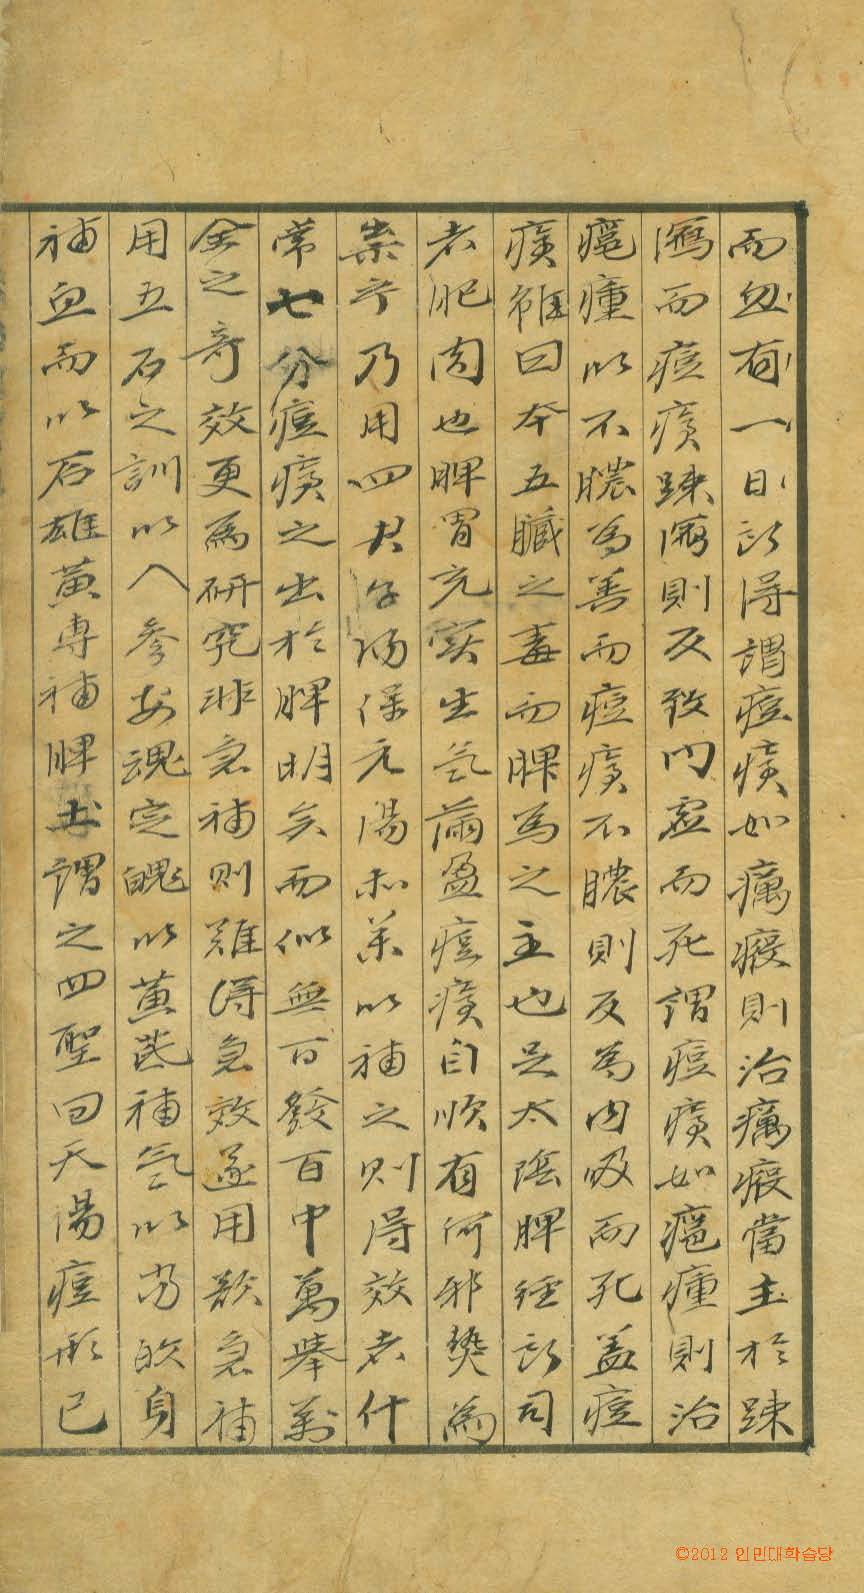 而忽有一日所得謂痘癀如癘瘢則治癘瘢當主於踈
瀉而痘癀踈瀉則反致內虛而死謂痘癀如瘇則治
瘇以不膿爲善而痘癀不膿則反爲內吸而死盖痘
癀雖曰本五臟之毒而脾爲之主也足太陰脾經所司
者肥肉也脾胃充实生氣滿盈痘癀自順有何邪獘爲
祟乎乃用四君子湯保元湯和茶以補之則得效者什
常七分痘癀之出於脾明矣而似無百發百中萬擧萬
全之奇效更爲硏究非急補則難得急效遂用歎急補
用五石之訓以人參安魂定魄以黃芪補氣以當的身
補血而以石雄黃專補脾土謂之四聖回天湯痘形已
©2012 인민대학습당